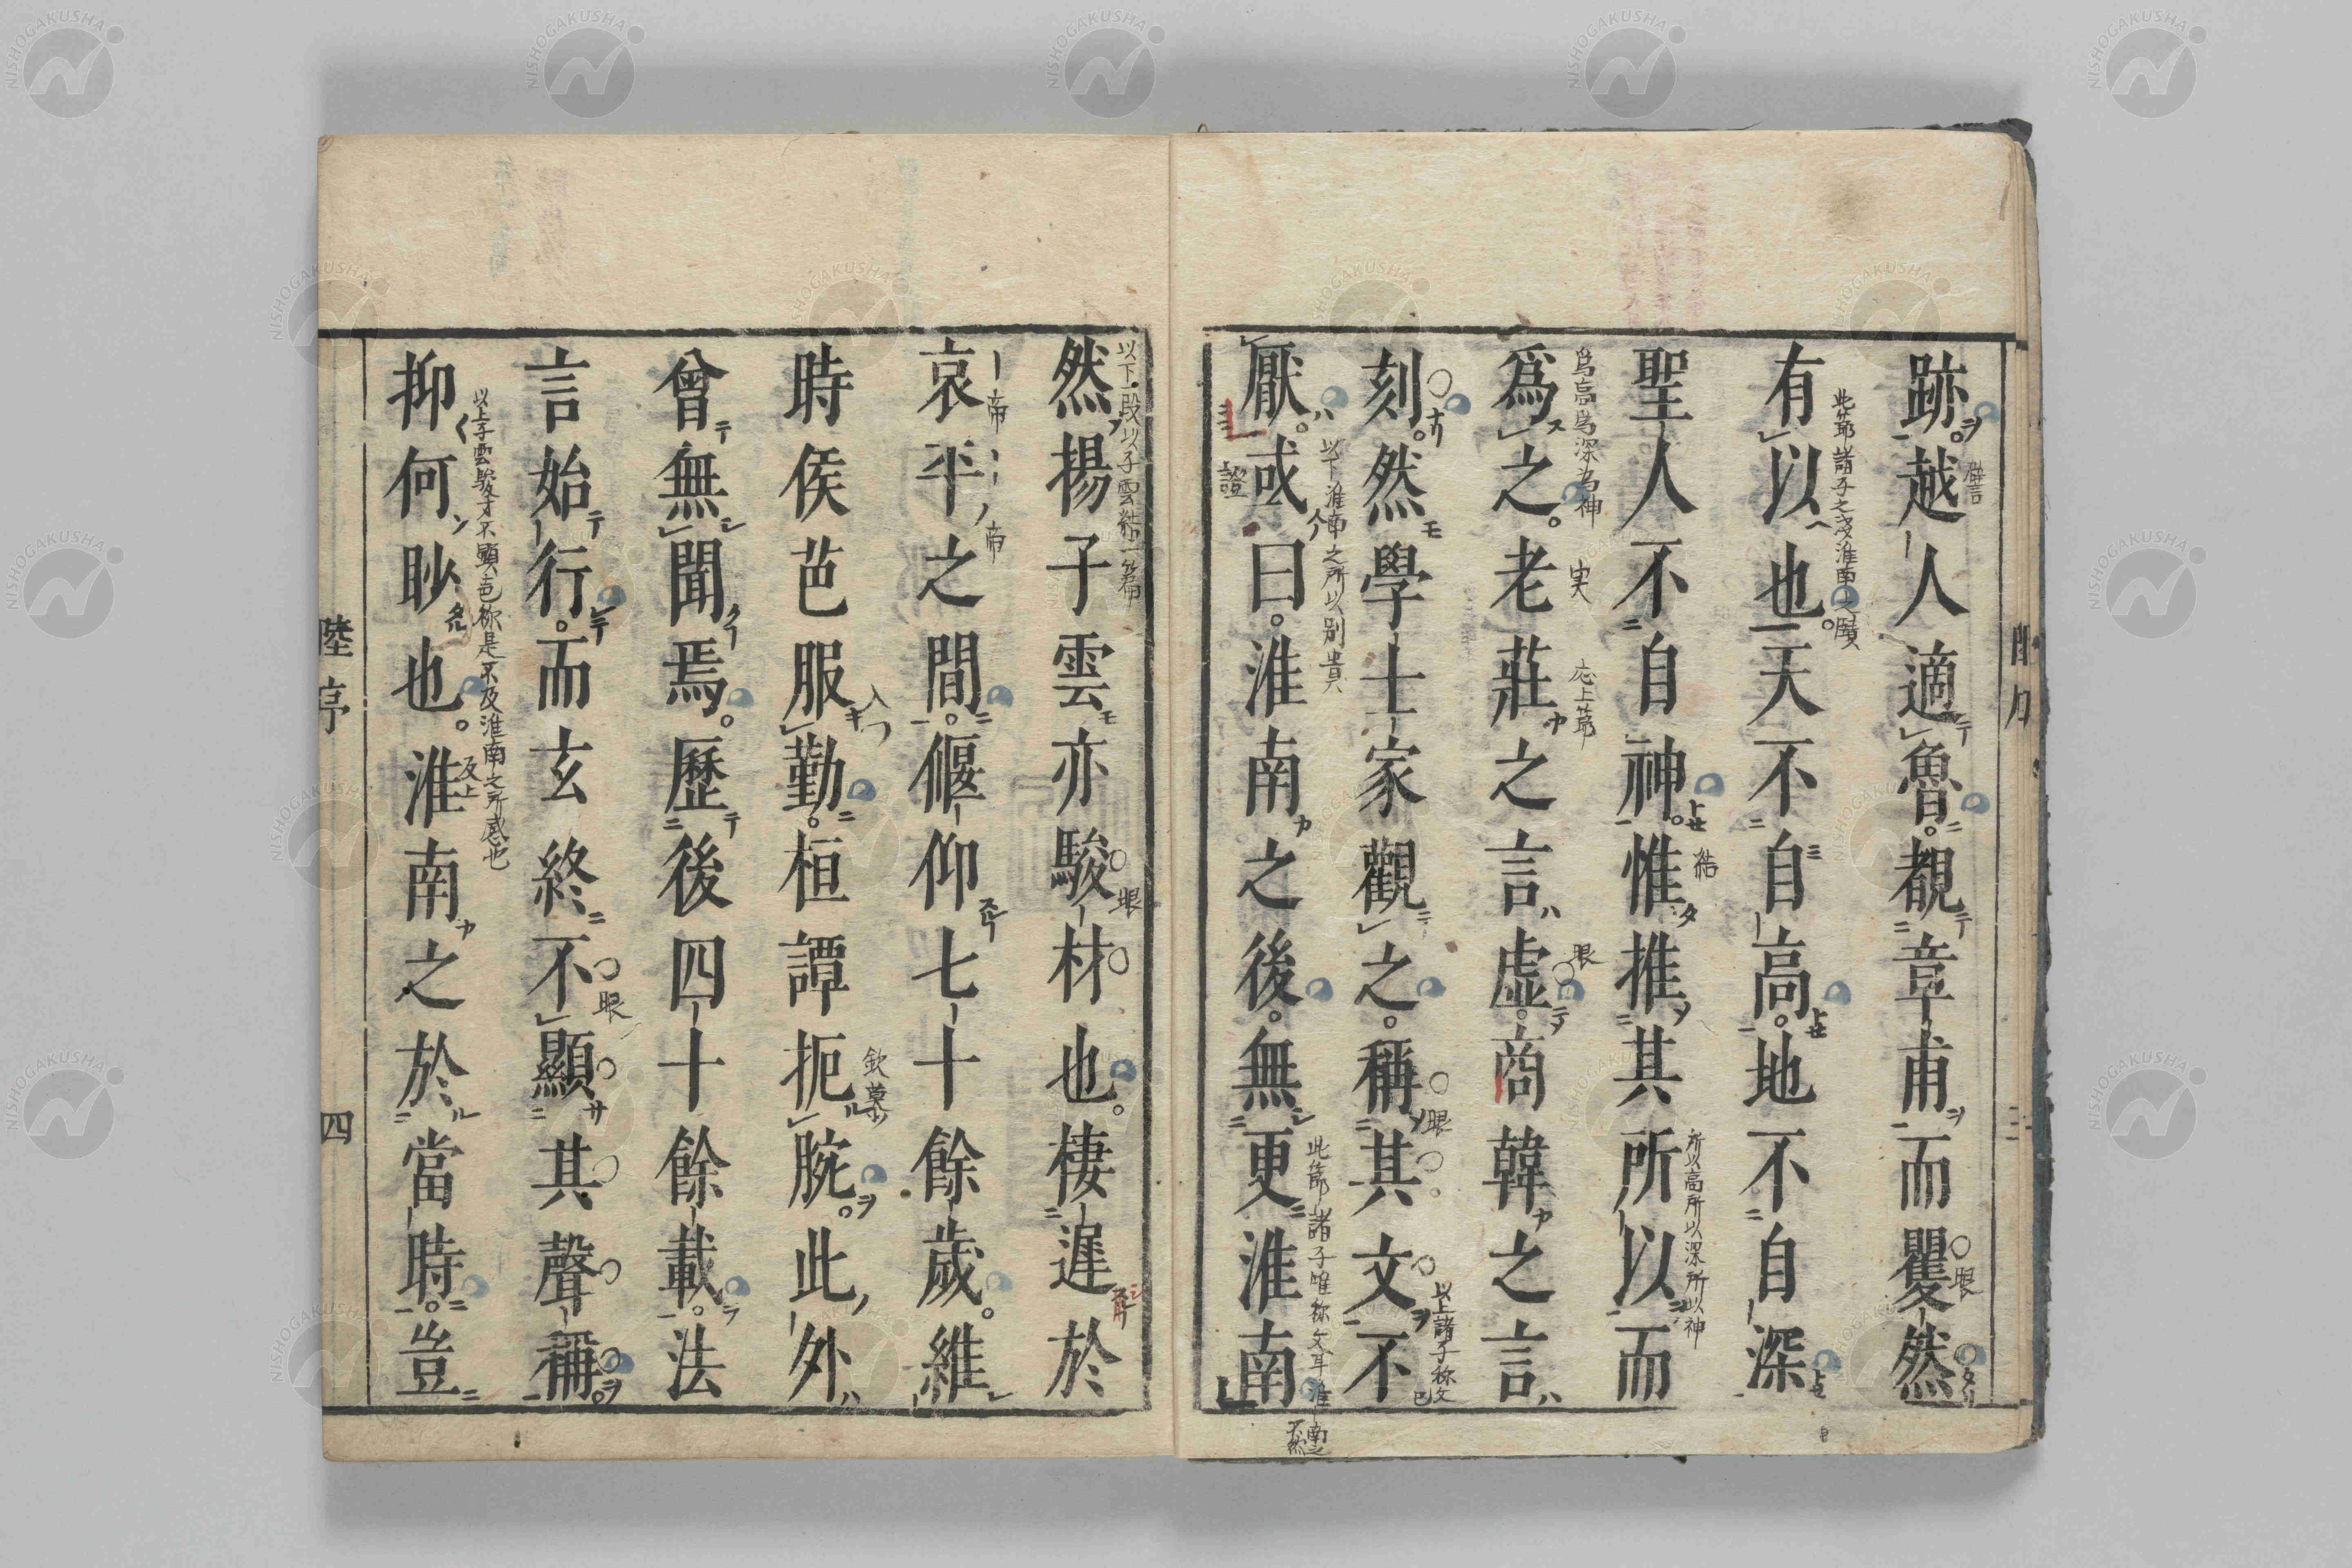 跡越人適魯覩章甫而矍然
有以也天不自高地不自深
聖人不自神惟推其所以而
爲之老莊之言虛商韓之言
刻然學士家觀之稱其文不
厭或曰淮南之後無更淮南
然揚子雲亦駿材也棲遲於
哀平之間偃仰七十餘歲維
時侯芭服勤桓譚扼腕此外
曾無聞焉歷後四十餘載法
言始行而玄終不顯其聲稱
抑何眇也淮南之於當時豈
陸序
四
此節諸子之淺淮南之賾
爲高爲深為神
所以高所以深所以神
以下淮南之所以別貴
以上諸子称文已
以下一段以子雲結一篇
以上子雲駿才不顯芭称是不及淮南之所感也
欽慕
應上節
眼
結
證
NISHOGAKUSHA